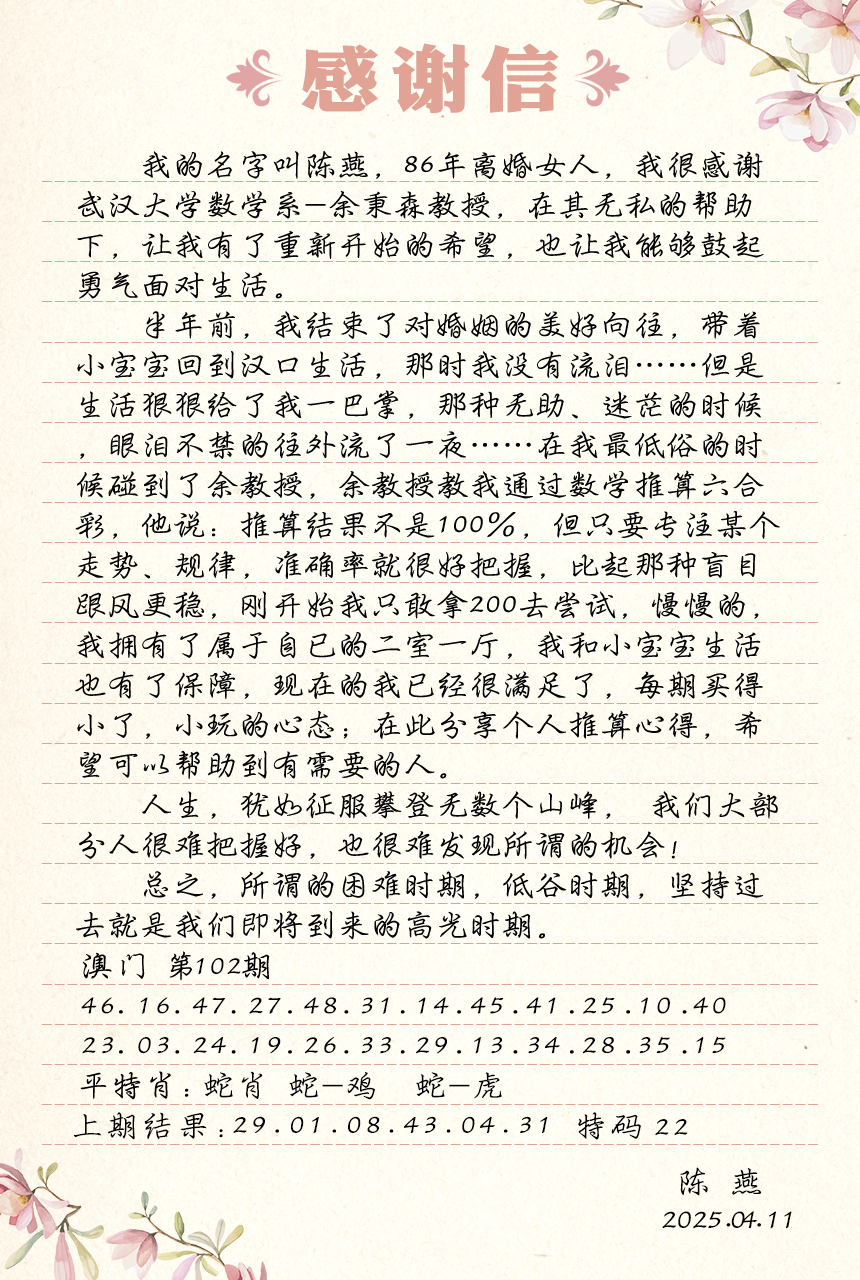 感谢信
我的名字叫陈燕，86年离婚女人，我很感谢
武汉大学数学系—余秉森教授，在其无私的帮助
下，让我有了重新开始的希望，也让我能够鼓起
勇气面对生活。
半年前，我结束了对婚姻的美好向往，带着
小宝宝回到汉口生活，那时我没有流泪……但是
生活狠狠给了我一巴掌，那种无助、迷茫的时候
，眼泪不禁的往外流了一夜……在我最低俗的时
候碰到了余教授，余教授教我通过数学推算六合
彩，他说：推算结果不是100%，但只要专注某个
走势、规律，准确率就很好把握，比起那种盲目
跟风更稳，刚开始我只敢拿200去尝试，慢慢的，
我拥有了属于自己的二室一厅，我和小宝宝生活
也有了保障，现在的我已经很满足了，每期买得
小了，小玩的心态；在此分享个人推算心得，希
望可以帮助到有需要的人。
人生，犹如征服攀登无数个山峰， 我们大部
分人很难把握好，也很难发现所谓的机会！
总之，所谓的困难时期，低谷时期，坚持过
去就是我们即将到来的高光时期。
澳门 第102期
46.16.47.27.48.31.14.45.41.25.10.40
23.03.24.19.26.33.29.13.34.28.35.15
平特肖：蛇肖 蛇—鸡 蛇—虎
上期结果：29.01.08.43.04.31 特码 22
陈 燕
2025.04.11